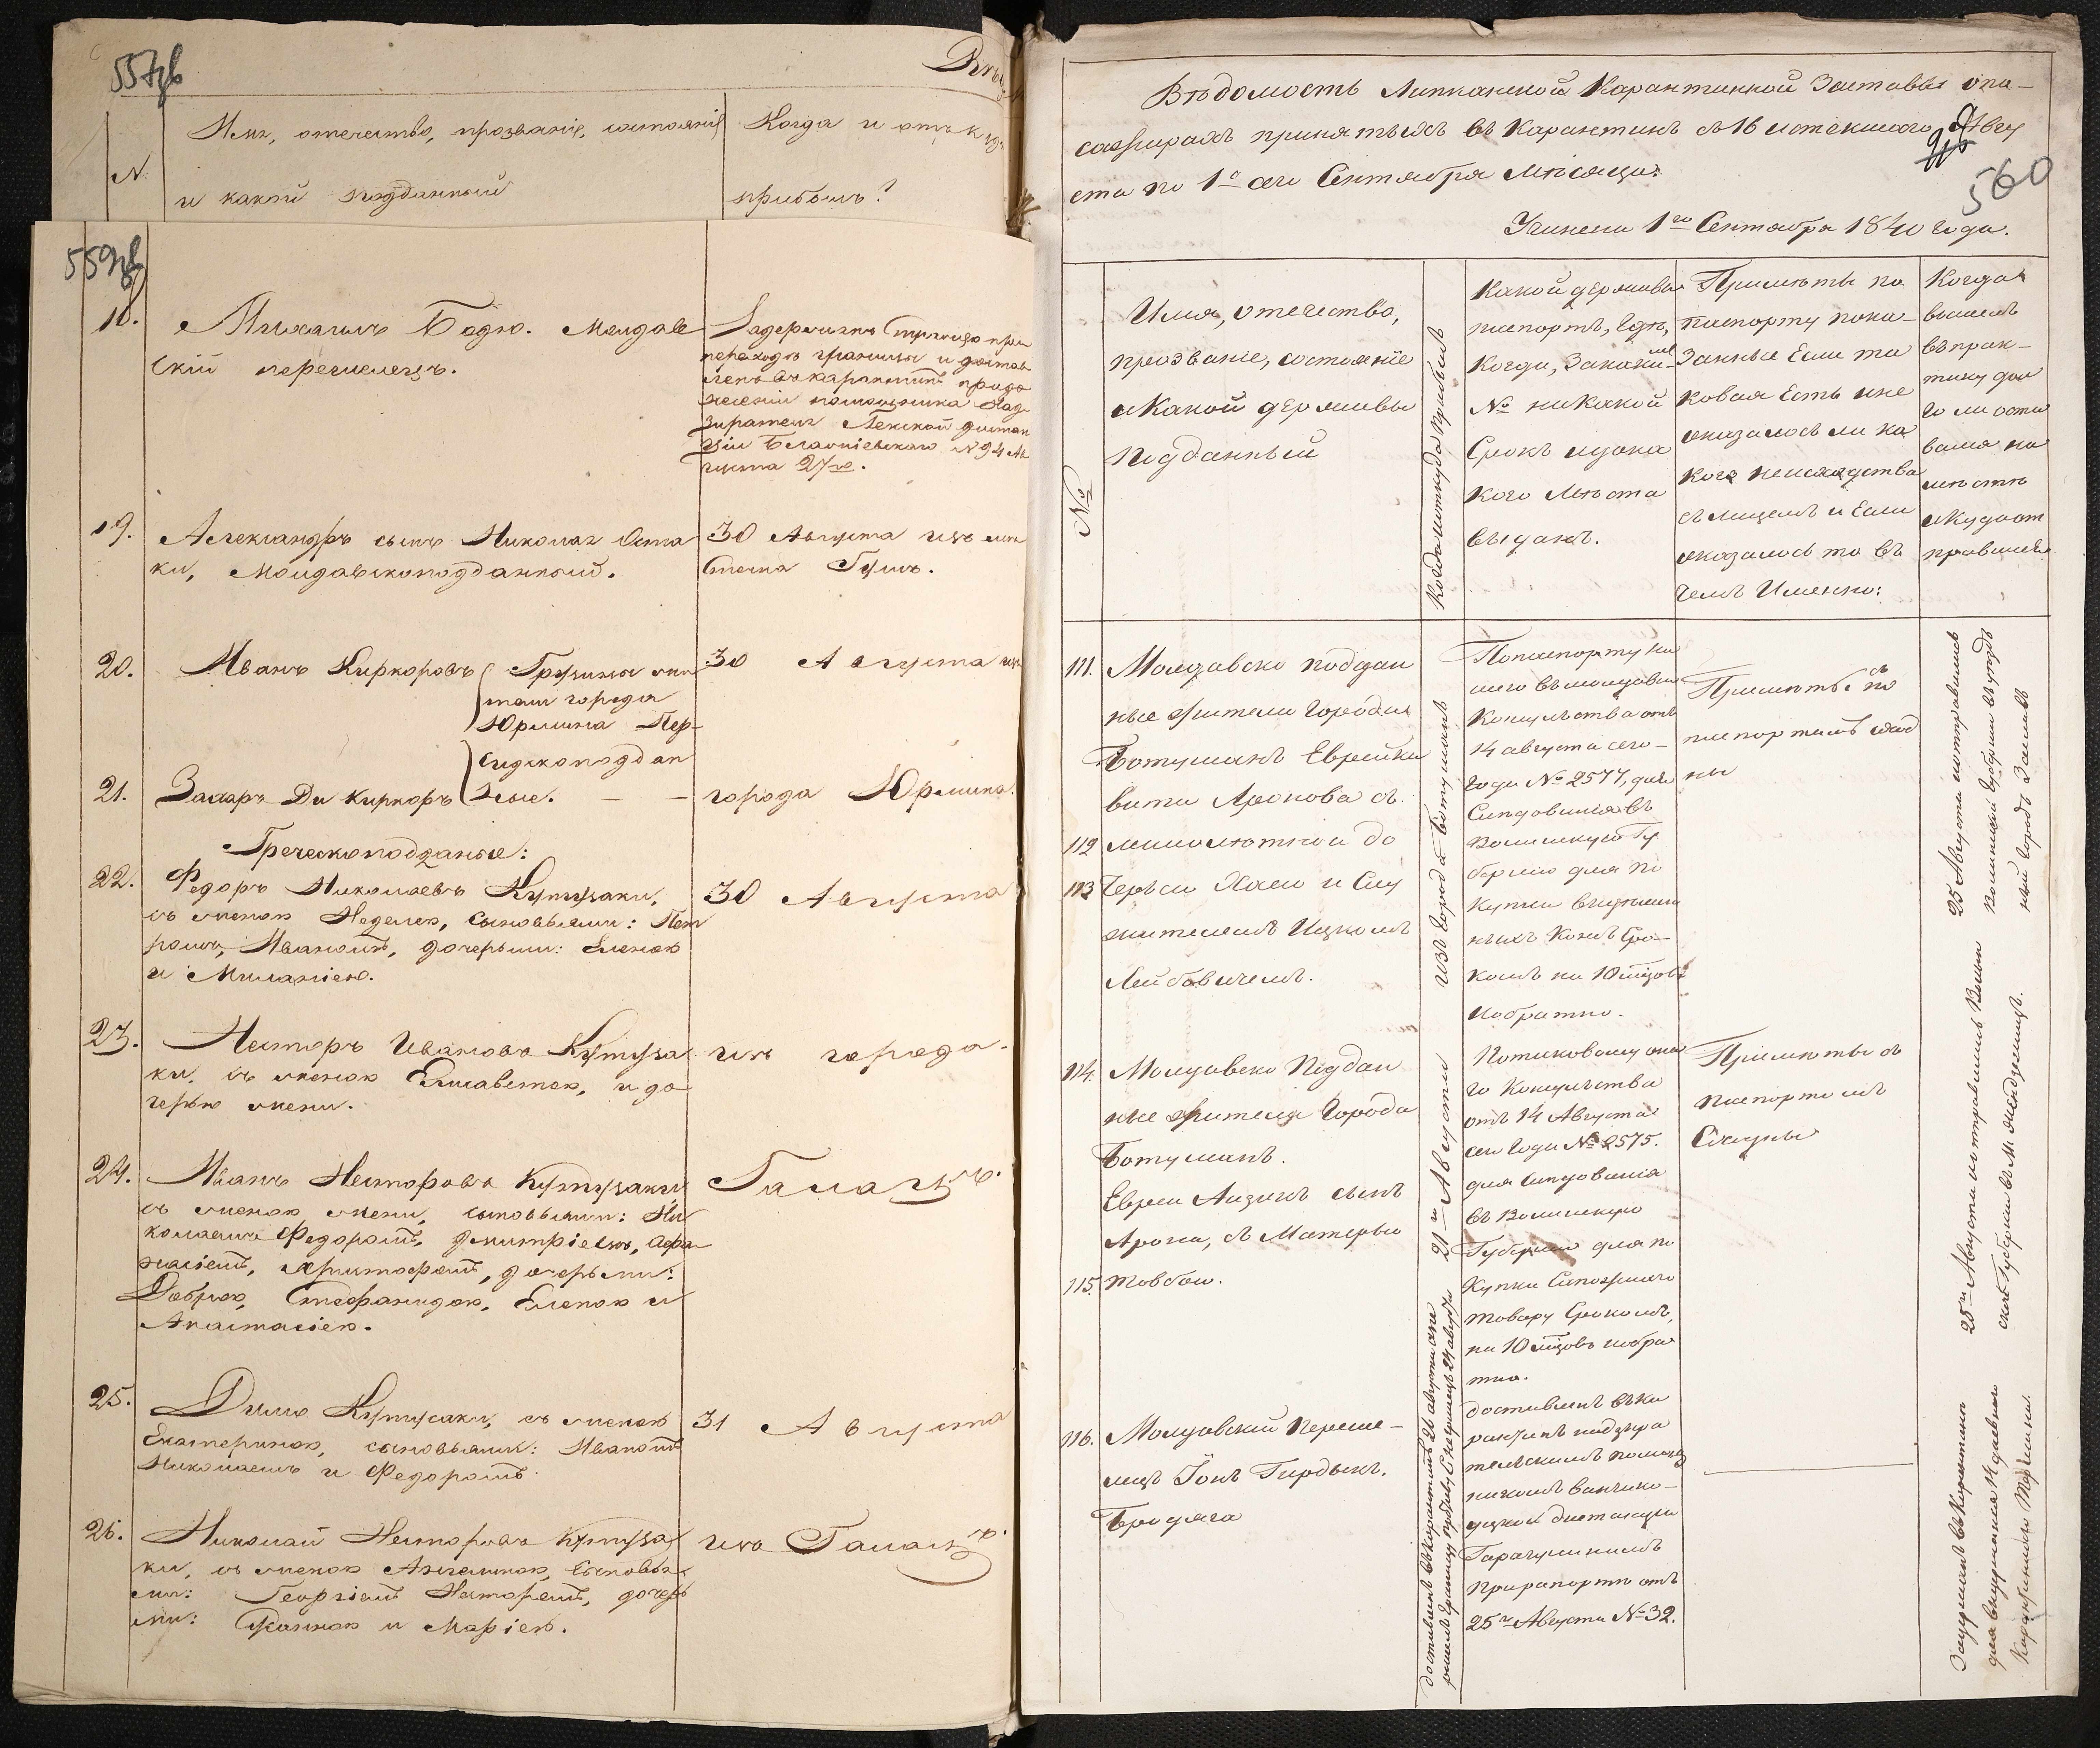 557об
Имя, отечество, прозваніе, состояніе
Когда и откуда
№
и какой подданный
прибылъ?
559об
18.
Михаилъ Бадю. Молдав
скій перешелецъ.
Задержанъ стражею при
переходѣ границы и достав
ленъ въ карантинъ
помощника Над
зирателя
№ 94 Ав
густа 27го.
19.
Александръ сынъ Николая Оста
ки, Молдавскоподданный.
30 Августа изъ мѣ
стечка
20.
Иванъ Киркоровъ
Грузины жи
тели города
Юрмина Пер-
сидскоподдан
ные.
30 Августа изъ
21.
Захаръ Ди Киркоръ
города Юрмина.
Греческоподданные:
22.
Федоръ Николаевъ Кутузаки,
съ женою Неделею, сыновьями: Пет
ромъ, Иваномъ, дочерьми: Еленою
и Миланіею.
30 Августа
23.
Несторъ Ивановъ Кутуза
ки, съ женою Елисаветою, и до
черью
изъ города
24.
Иванъ Несторовъ Кутузаки
съ женою сыновьями: Ни
колаемъ Федоромъ, Дмитріемъ, Афа
насіемъ, Христофомъ, дочерьми:
Доброю, Стефанидою, Еленою и
Анастасіею.
Галацъ.
25.
Димо Кутусаки, съ женою
Екатериною, сыновьями: Иваномъ
Николаемъ и Федоромъ.
31 Августа
26.
Николай Несторовъ Кутуза
ки, съ женою Ангелиною, сыновья
ми: Георгіемъ Несторомъ, дочерь
ми: и Маріею.
изъ Галацъ.
Вѣдомость Липканской Карантинной Заставы о па-
сажирахъ принятыхъ въ Карантинъ съ 16 истекшаго Авгу
ста по 1е сего Сентября мѣсяца.
560
Учинена 1го Сентября 1840 года.
№
Имя, отечество,
прозваніе, состояніе
и Какой державы
подданный
Когда и откуда прибылъ
Какой державы
паспортъ, где,
Когда, За каким
№ на какой
Срокъ и до ка
кого Мѣста
выданъ.
Примѣты по
паспорту пока-
занные Если та
ковая Есть и не
оказалось ли ка
кого несходства
съ лицемъ и Если
оказалось то въ
чемъ Именно:
Когда
вышелъ
въ прак-
тику дол
го ли оста
вался на
мѣстѣ
и куда от
правился
111.
Молдавско поддан
ные жители города
Ботушанъ Еврейка
Аронова съ
112
малолѣтною до
113
черью Хаею и Слу
жителемъ Ицкомъ
Лейбовичемъ.
изъ города Ботушанъ
По паспорту на
шего въ молдавіи
Консульства отъ
14 августа сего-
года № 2577, для
Слѣдованія въ
Волынскую Гу
бернію для по
купки
Коней Сро-
комъ на 10 мѣсяцовъ
и обратно.
Примѣты съ
паспортомъ сход
ны
25 Августа и отправились
Волынской Губерніи въ уѣздъ
114.
Молдавско Поддан
ные жители Города
Ботушанъ.
Евреи Айзикъ сынъ
Арона, съ Матерью
115.
Товбою.
21го Августа
По таковому она
го Консульства
отъ 14 Августа
сего Года № 2575.
для слѣдованія
въ Волынскую
Губернію для по
купки Сапожнаго
товару Срокомъ,
на 10 мѣсяцовъ и обра
тно.
Примѣты съ
паспортомъ
Сходны
25го Августа и отправились Волын
ской Губерніи въ М.
116.
Молдавскій переше-
лецъ Іонъ Гирдыкъ.
Бродяга
доставленъ въ Карантинъ 26 августа а пе
решелъ границу 24 августа
доставленъ въ ка
рантинъ надзира
тельскимъ помощ
никомъ
дистанціи
при рапортѣ отъ
25го Августа № 32.
Задержанъ въ Карантинѣ
для выдержанія 14 дневнаго
Карантиннаго термина.